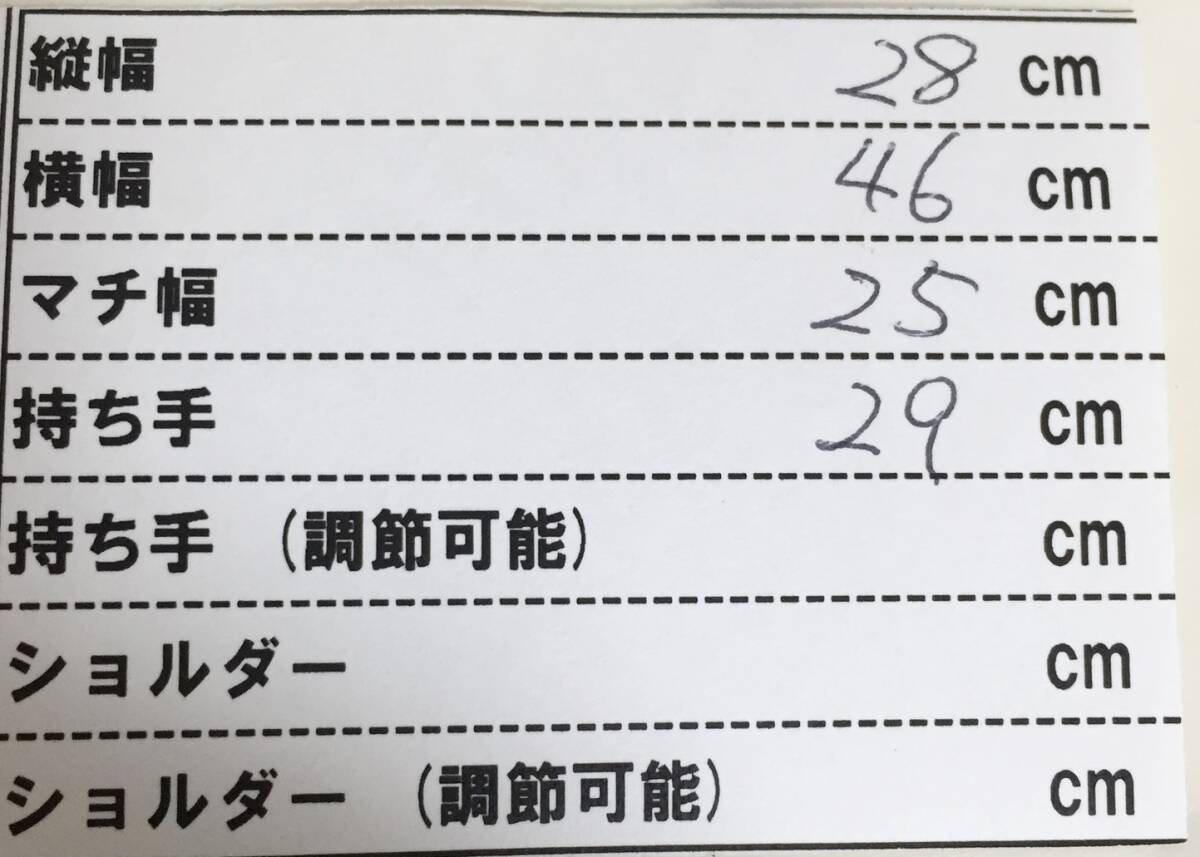 縦幅 28 cm
横幅 46 cm
マチ幅 25 cm
持ち手 29 cm
持ち手 (調節可能) cm
ショルダー cm
ショルダー (調節可能) cm